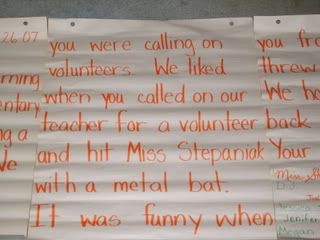 26.07
rning
entary
ng a
We
you were calling on
volunteers. We liked
when you called on our
teacher for a volunteer
and hit Miss Stepaniak
with a metal bat.
It was funny when
you fro
threw
We ho
back
Your
D.J.
Jenifer
Megan